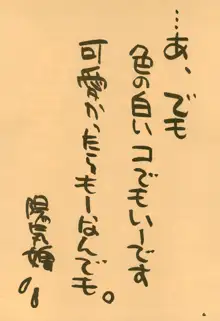 ……あ、でも
色の白いコでもいーです
可愛かったらもーなんでも。
陽気婢